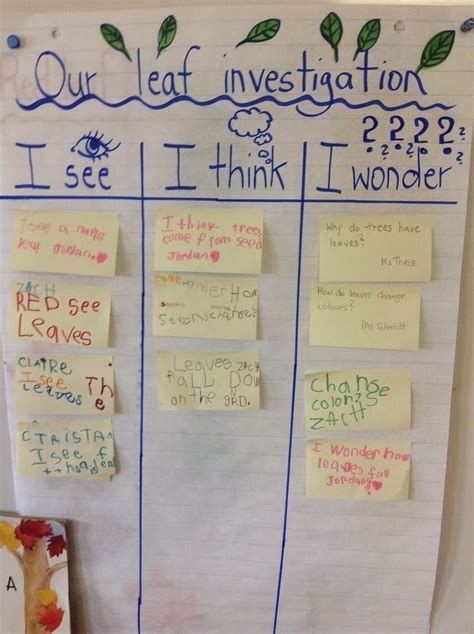 Our leaf investigation
I see
I think
I wonder
????
???
I see a
leaf Jordan.
ZACH
RED see
Leaves
CLAIRE
I see
Leaves The
TRISTAN
I see
I think trees
come from seed
Jordan
Leaves ZACH
fALL DOW
on the gRD.
Why do trees have
leaves?
Ms Theis
How do leaves change
colours?
Ms Schmidt
Change
colors?
ZACH
I Wonder how
leaves fall
Jordan
A